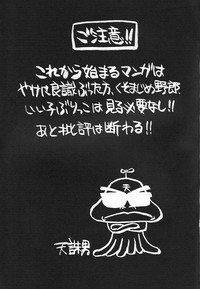 ご注意!!
これから始まるマンガは
やけに良識ぶった方、くそまじめ野郎
いい子ぶりっこは見る必要なし!!
あと批評は断わる!!
天
天誅男